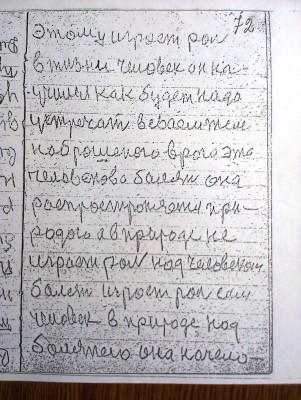 72
этому играет рол
в жизни человек он на-
учился как будет надо
встречат всеваемжем
наброшеного врага эта
человекова балезн она
распространяет при-
родога а в природе не
играет рол над человеком
балезн играет рол сам
человек в природе над
балезнею она начело-